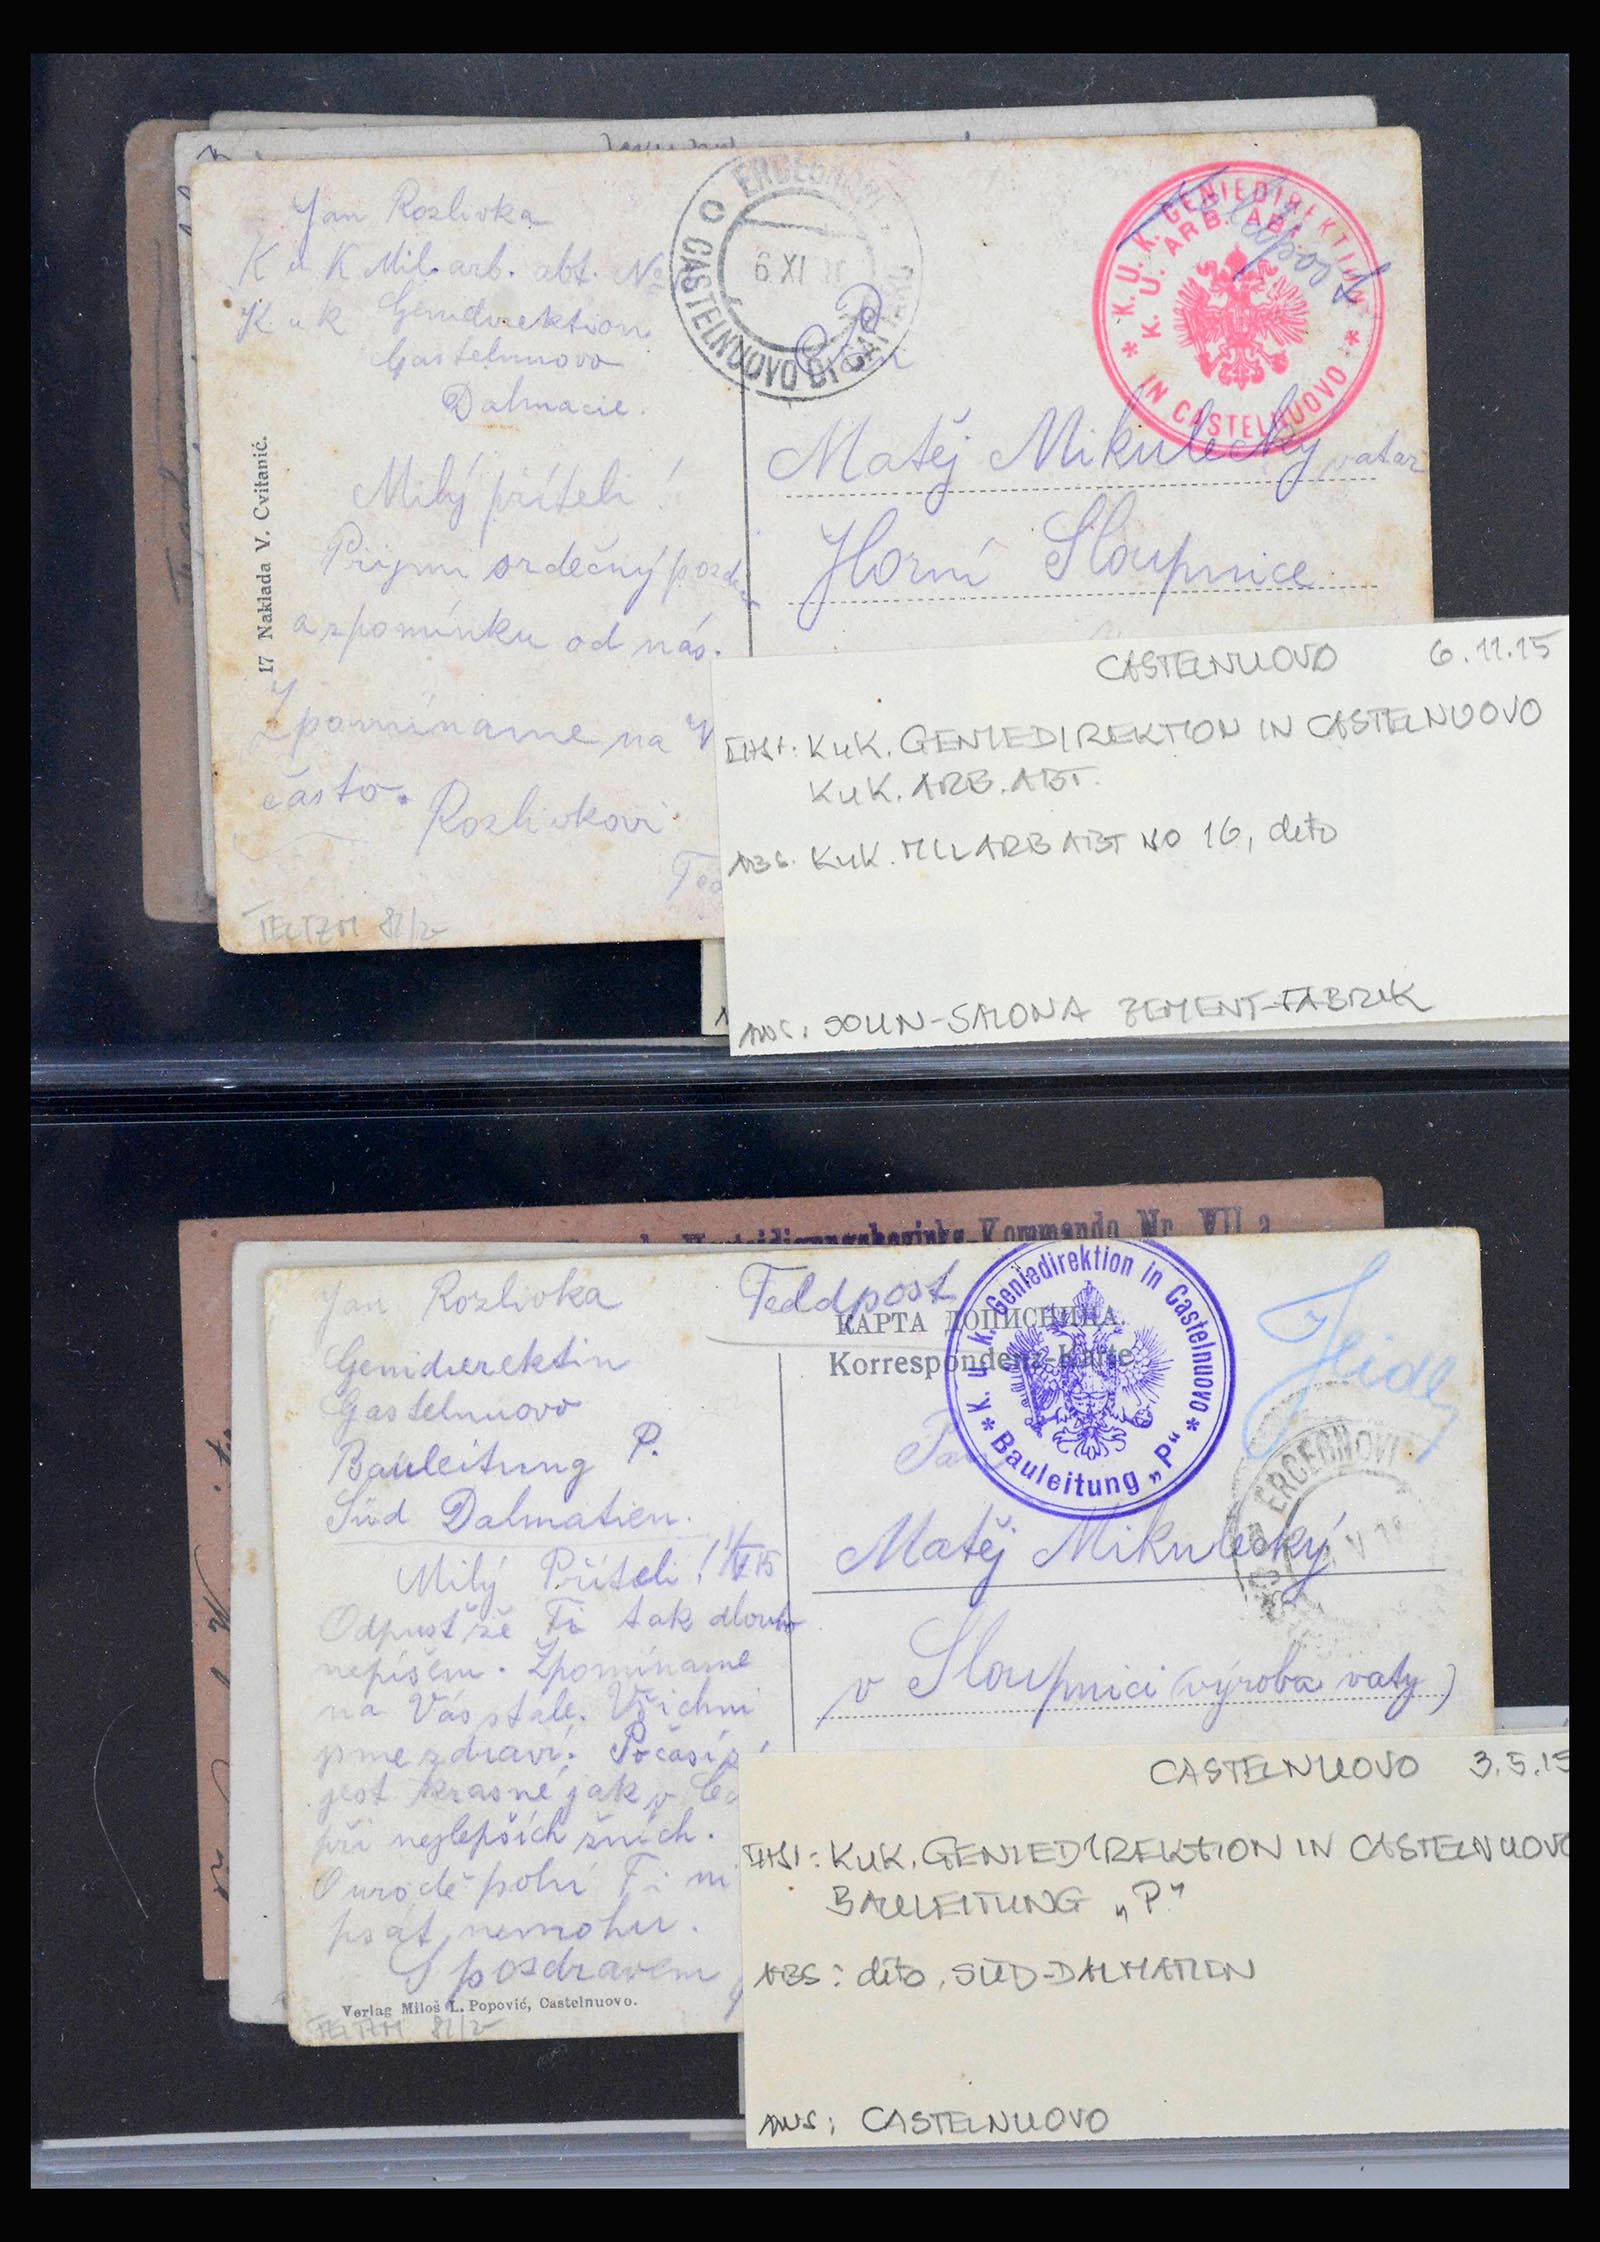 Jan Rozlivka
K u K Mil. arb. abt. No
K. u K Geniedirektion
Gastelnuovo
Dalmacie.
Milý příteli!
Prijmi srdečný pozdrav
a zpomínku od nás.
Zpomíname na V
často.
Rozlivkovi
17 Naklada V. Cvitanić.
TELTZM 82/2-
ERCEGNOVI
CASTELNUOVO DI CATTARO
6 XI
Feldpost
* K. U. K. GENIEDIREKTION *
K. U. ARB. ABT.
IN CASTELNUOVO
Pn
Matěj Mikulecký vatař
Horní Sloupnice
CASTELNUOVO 6.11.15
KuK. GENIEDIREKTION IN CASTELNUOVO
KuK. ARB. ABT.
ABS. KuK. MIL ARB ABT NO 16, dito
ANS: SOLIN-SALONA ZEMENT-FABRIK
Verteidigungsbezirks-Kommando Nr. VII a
Jan Rozlivka
Geniedirektin
Gastelnuovo
Bauleitung P.
Süd Dalmatien.
Milý Příteli!
Odpusť že Ti tak dlouho
nepíšem. Zpomíname
na Vás stale. Všichni
jsme zdraví. Počasí
jest krasné jak v
při nejlepších žních.
O urodě polní Ti ni
psát nemohu.
S pozdravem
Verlag Miloš L. Popović, Castelnuovo.
TELTZM 82/2-
Feldpost
КАРТА ДОПИСНИЦА.
Korrespondenz-Karte
K. u. k. Geniedirektion in Castelnuovo
* Bauleitung „P“ *
ERCEGNOVI
Matěj Mikulecký
v Sloupnici (výroba vaty)
CASTELNUOVO 3.5.15
KuK. GENIEDIREKTION IN CASTELNUOVO
BAULEITUNG „P“
ABS: dito, SÜD-DALMATIEN
ANS: CASTELNUOVO